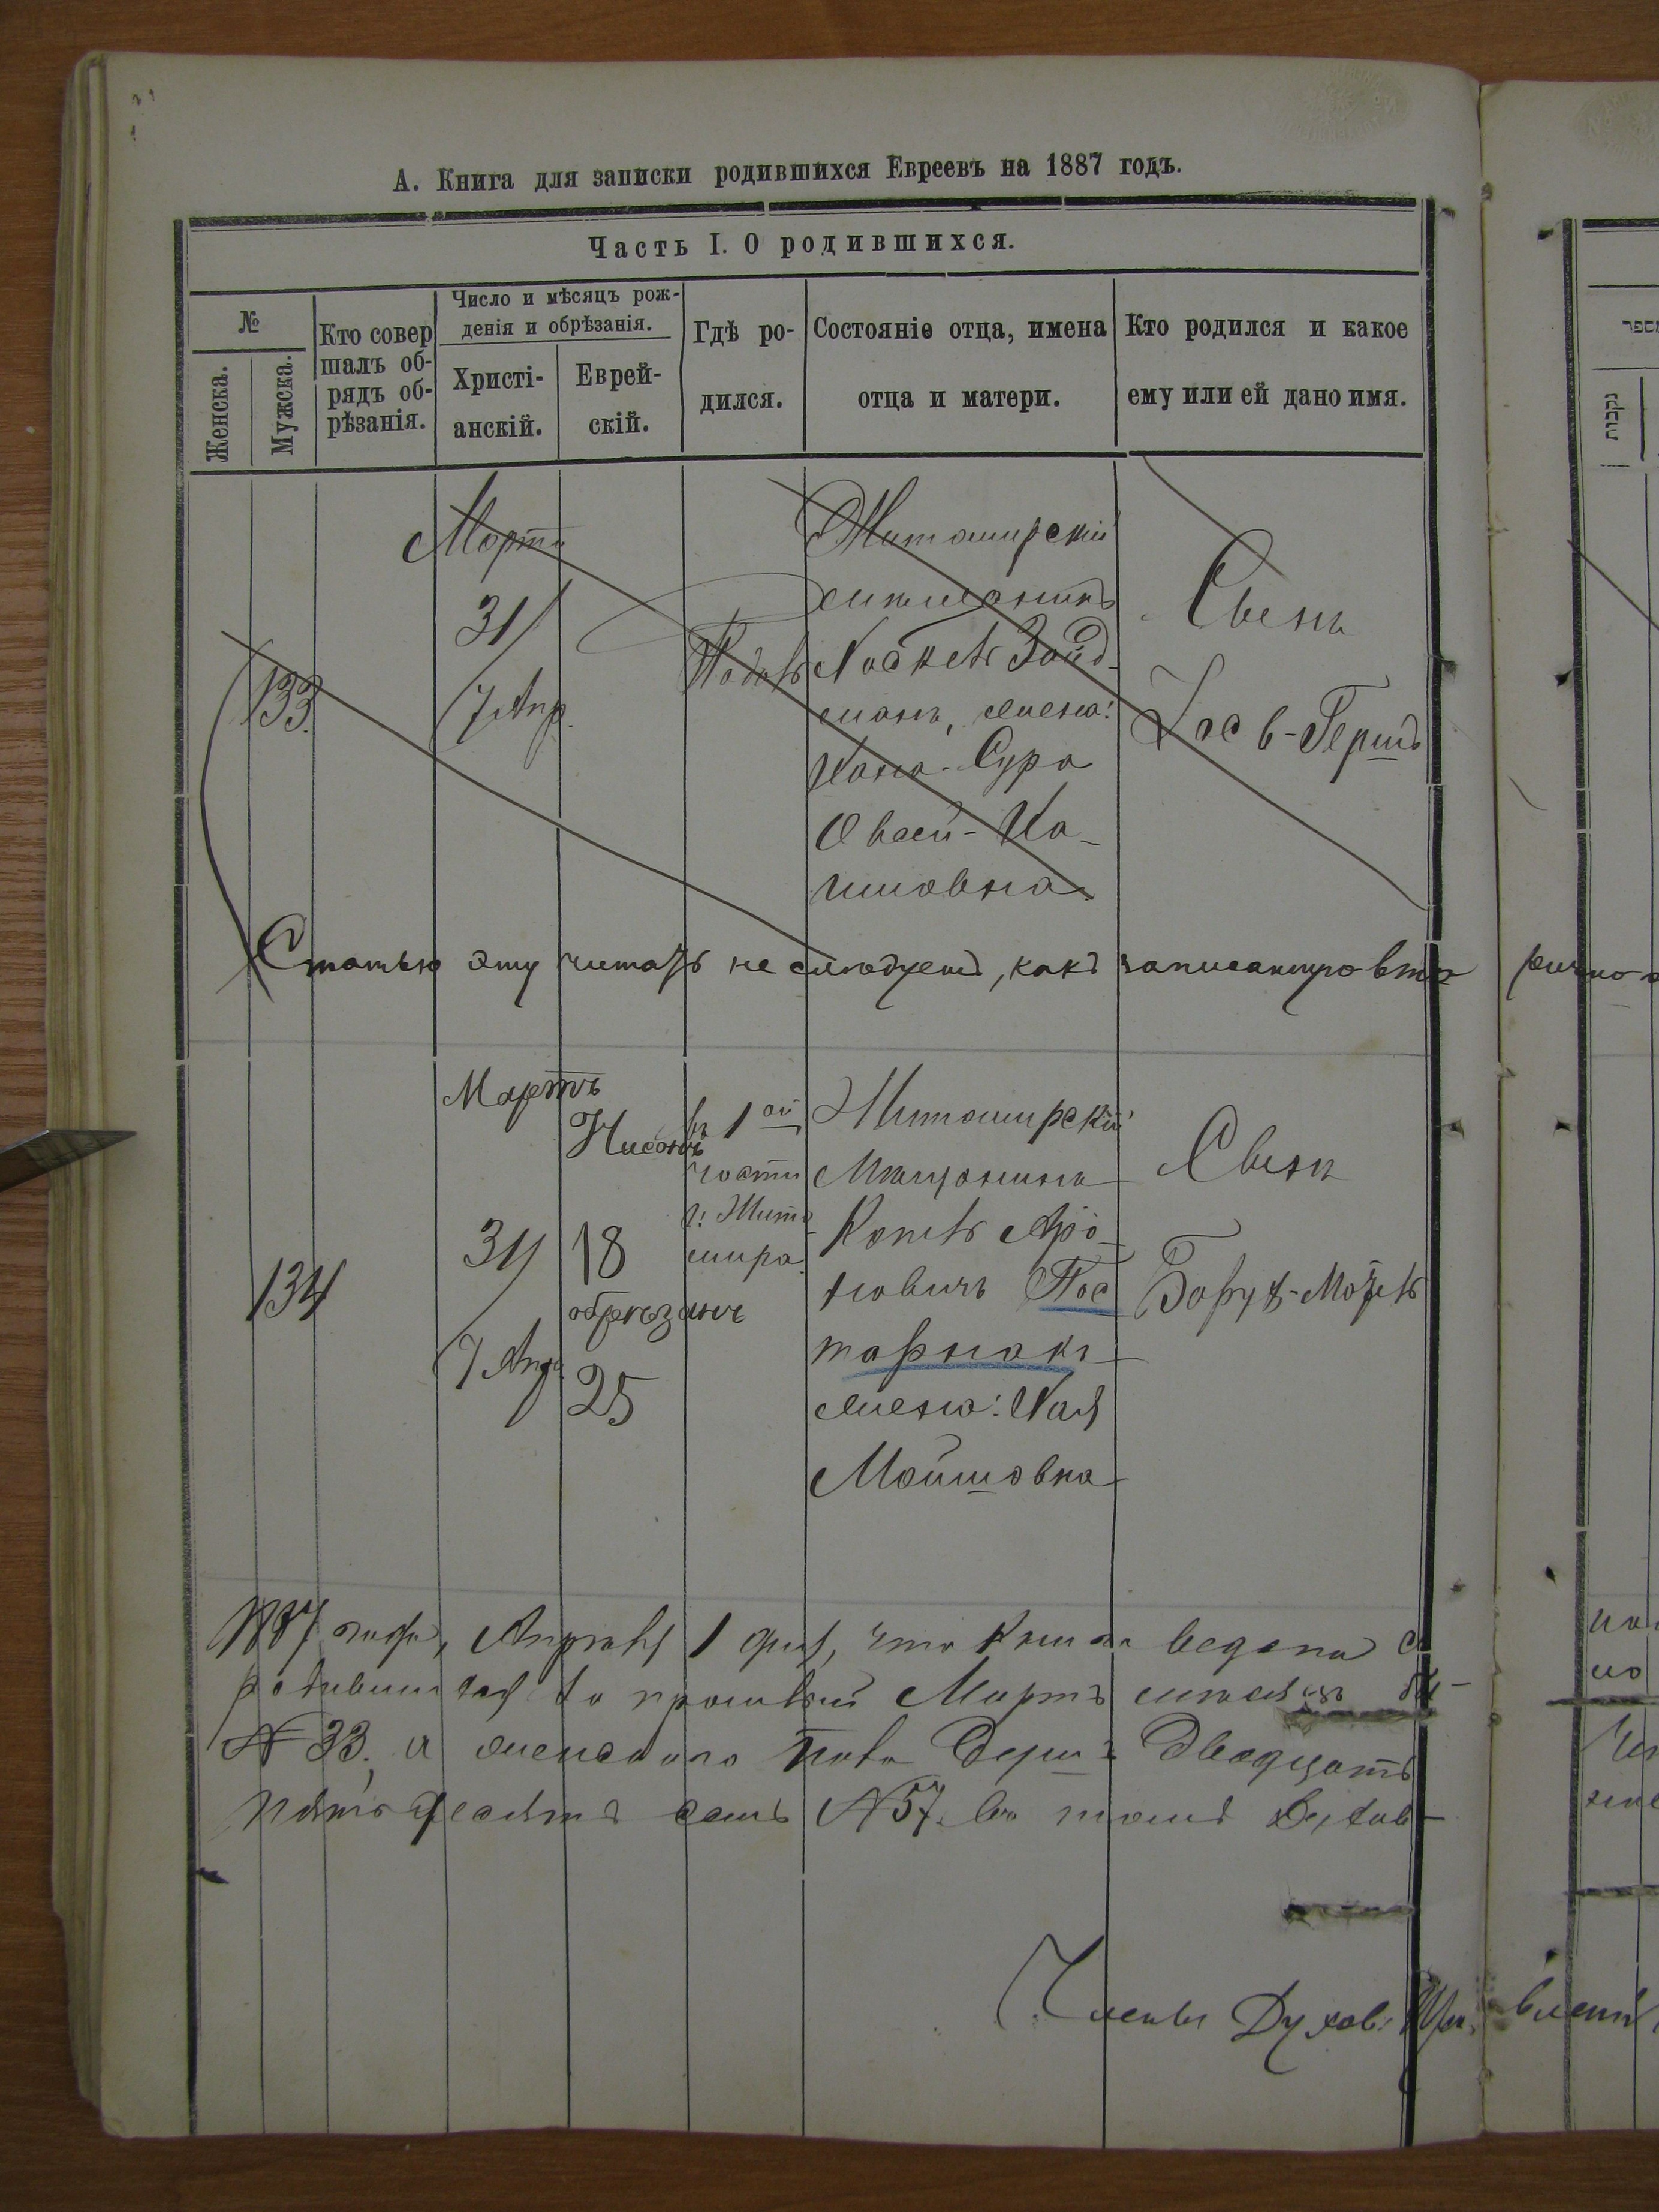 А. Книга для записки родившихся Евреевъ на 1887 годъ.
Часть I. О родившихся.
№
Женска.
Мужска.
Кто совер
шалъ об-
рядъ об-
рѣзанія.
Число и мѣсяцъ рож-
денія и обрѣзанія.
Христі-
анскій.
Еврей-
скій.
Гдѣ ро-
дился.
Состояніе отца, имена
отца и матери.
Кто родился и какое
ему или ей дано имя.
133.
Мартъ
31/
7 Апр.
Житомирскій
Зайд-
манъ, жена:
Хана-Сура
Овсей-Ха-
имовна
Сынъ
Іосъ-Гершъ
Статью эту читать не следуетъ, какъ записанную вто
рично
134
Мартъ
31/
7 Апр.
Нисонъ
18
обрезанъ
25
въ 1ой
части
г. Жито-
мира.
Житомирскій
Мещанинъ
Копель Аро-
новичъ Пос
тарнакъ
жена: Хая
Мойшовна
Сынъ
Борух-Мойсей
1887 года, Апреля 1 дня, что книга ведена о
родившихся за прошлый Мартъ месяцъ
№ 33, а женскаго пола
Пятьдесятъ семь № 57. въ томъ Духов-
Члены Духов: Пра
вленія
מספר
נקבות